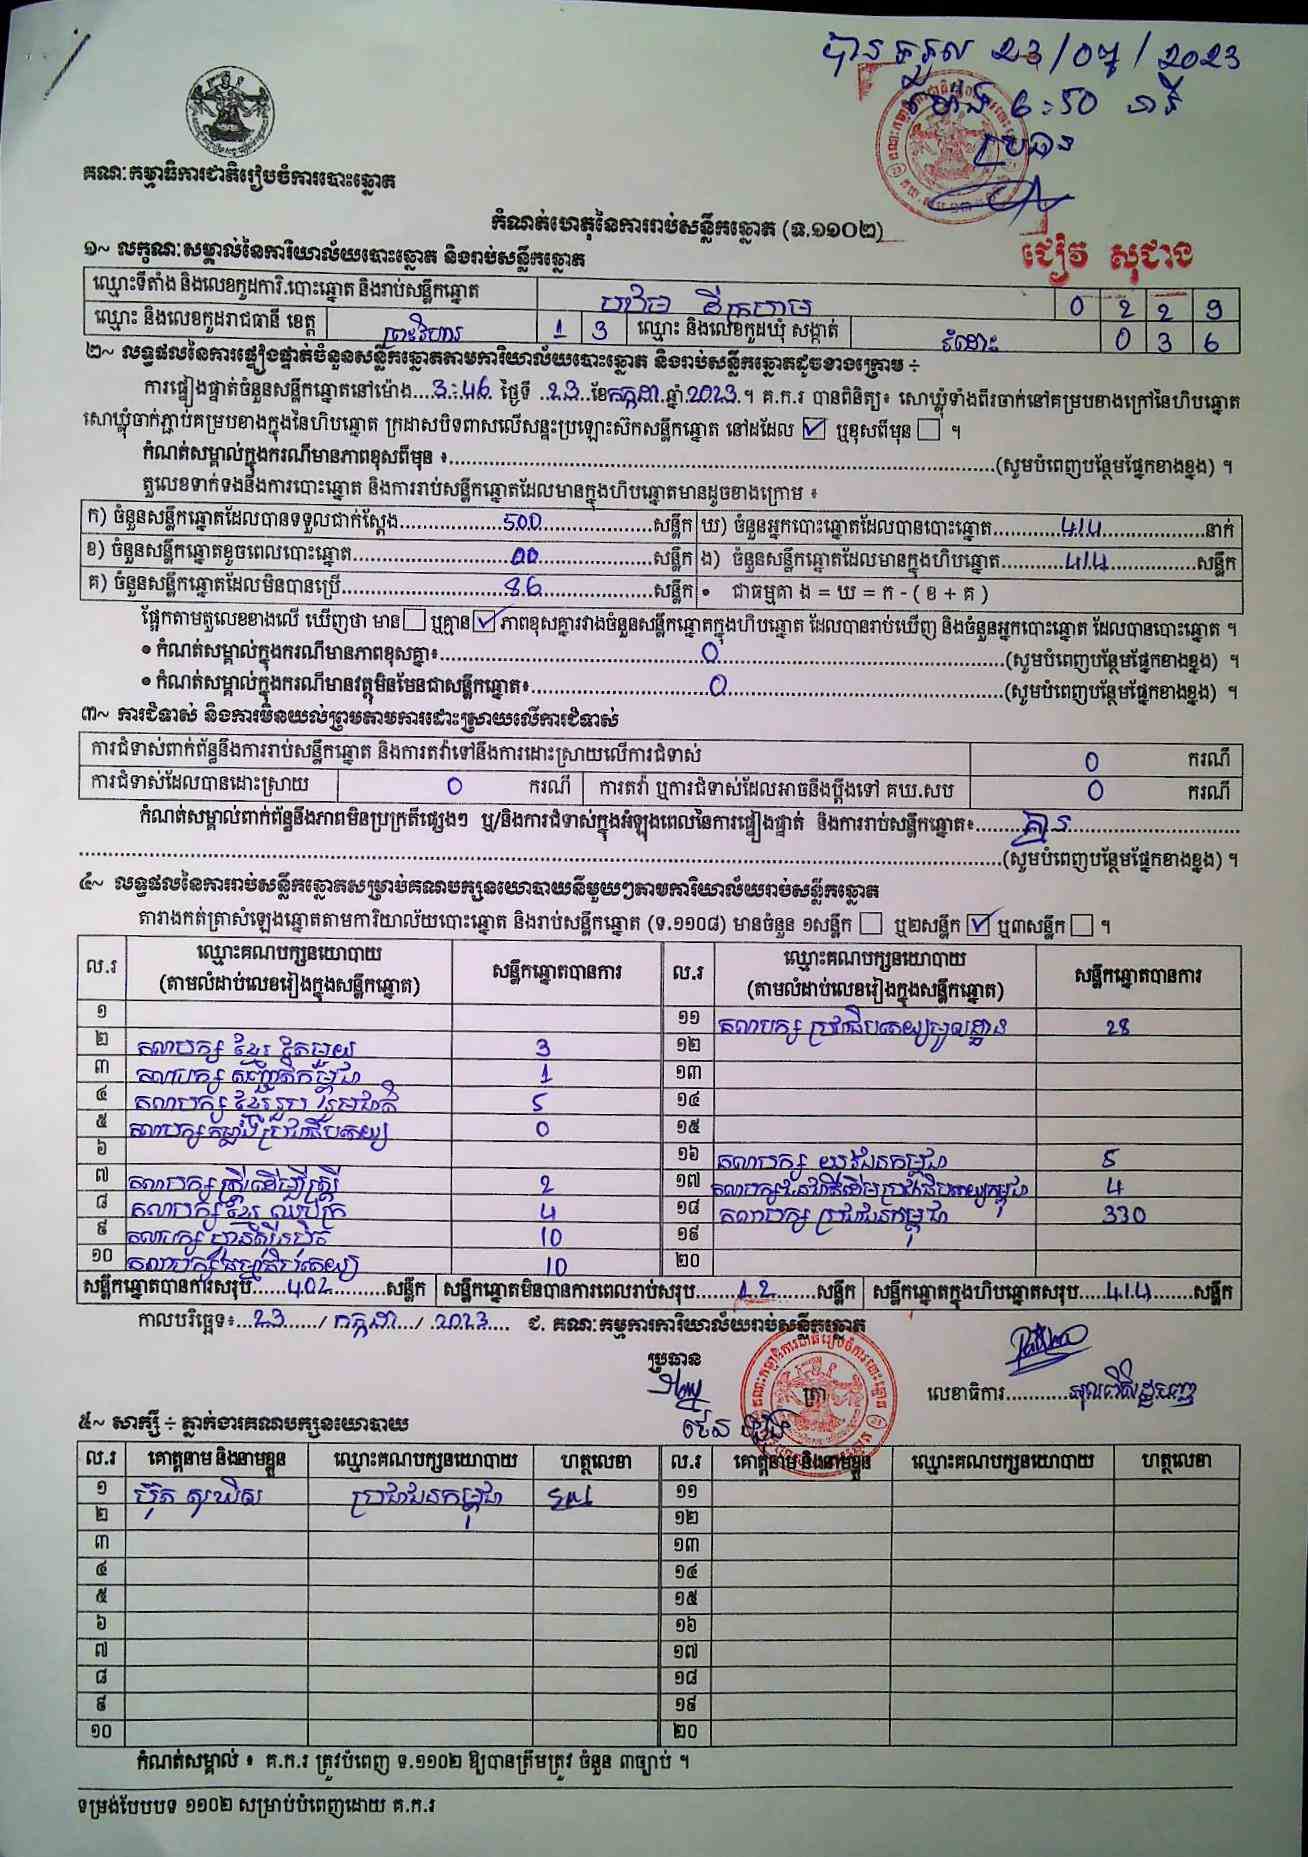 បានទទួល 23/07/2023
ម៉ោង 6:50 នាទី
ប្រធាន
គណៈកម្មាធិការជាតិរៀបចំការបោះឆ្នោត
ជឿវ សុជាង
កំណត់ហេតុនៃការរាប់សន្លឹកឆ្នោត (ទ.១១០២)
១~ លក្ខណៈសម្គាល់នៃការិយាល័យបោះឆ្នោត និងរាប់សន្លឹកឆ្នោត
ឈ្មោះទីតាំង និងលេខកូដការិ.បោះឆ្នោត និងរាប់សន្លឹកឆ្នោត 0 2 2 9
ឈ្មោះ និងលេខកូដរាជធានី ខេត្ត ព្រះវិហារ 1 3 ឈ្មោះ និងលេខកូដឃុំ សង្កាត់ 0 3 6
២~ លទ្ធផលនៃការផ្ទៀងផ្ទាត់ចំនួនសន្លឹកឆ្នោតតាមការិយាល័យបោះឆ្នោត និងរាប់សន្លឹកឆ្នោតដូចខាងក្រោម ÷
ការផ្ទៀងផ្ទាត់ចំនួនសន្លឹកឆ្នោតនៅម៉ោង....3:46. ថ្ងៃទី ..23..ខែកក្កដា.ឆ្នាំ.2023.។ គ.ក.រ បានពិនិត្យ៖ សោឃ្លុំទាំងពីរចាក់នៅគម្របខាងក្រៅនៃហិបឆ្នោត
សោឃ្លុំចាក់ភ្ជាប់គម្របខាងក្នុងនៃហិបឆ្នោត ក្រដាសបិទពាសលើសន្ទះប្រឡោះស៊កសន្លឹកឆ្នោត នៅដដែល ☑ ឬខុសពីមុន ☐ ។
កំណត់សម្គាល់ក្នុងករណីមានភាពខុសពីមុន ៖..........(សូមបំពេញបន្ថែមផ្នែកខាងខ្នង) ។
តួលេខទាក់ទងនឹងការបោះឆ្នោត និងការរាប់សន្លឹកឆ្នោតដែលមានក្នុងហិបឆ្នោតមានដូចខាងក្រោម ៖
ក) ចំនួនសន្លឹកឆ្នោតដែលបានទទួលជាក់ស្តែង..........500..........សន្លឹក ឃ) ចំនួនអ្នកបោះឆ្នោតដែលបានបោះឆ្នោត..........414..........នាក់
ខ) ចំនួនសន្លឹកឆ្នោតខូចពេលបោះឆ្នោត..........00..........សន្លឹក ង) ចំនួនសន្លឹកឆ្នោតដែលមានក្នុងហិបឆ្នោត..........414..........សន្លឹក
គ) ចំនួនសន្លឹកឆ្នោតដែលមិនបានប្រើ..........86..........សន្លឹក • ជាធម្មតា ង = ឃ = ក - ( ខ + គ )
ផ្អែកតាមតួលេខខាងលើ ឃើញថា មាន ☐ ឬគ្មាន ☑ ភាពខុសគ្នារវាងចំនួនសន្លឹកឆ្នោតក្នុងហិបឆ្នោត ដែលបានរាប់ឃើញ និងចំនួនអ្នកបោះឆ្នោត ដែលបានបោះឆ្នោត ។
• កំណត់សម្គាល់ក្នុងករណីមានភាពខុសគ្នា៖..........0..........(សូមបំពេញបន្ថែមផ្នែកខាងខ្នង) ។
• កំណត់សម្គាល់ក្នុងករណីមានវត្ថុមិនមែនជាសន្លឹកឆ្នោត៖..........0..........(សូមបំពេញបន្ថែមផ្នែកខាងខ្នង) ។
៣~ ការជំទាស់ និងការមិនយល់ព្រមតាមការដោះស្រាយលើការជំទាស់
ការជំទាស់ពាក់ព័ន្ធនឹងការរាប់សន្លឹកឆ្នោត និងការតវ៉ាទៅនឹងការដោះស្រាយលើការជំទាស់ 0 ករណី
ការជំទាស់ដែលបានដោះស្រាយ 0 ករណី ការតវ៉ា ឬការជំទាស់ដែលអាចនឹងប្តឹងទៅ គឃ.សប 0 ករណី
កំណត់សម្គាល់ពាក់ព័ន្ធនឹងភាពមិនប្រក្រតីផ្សេងៗ ឬ/និងការជំទាស់ក្នុងអំឡុងពេលនៃការផ្ទៀងផ្ទាត់ និងការរាប់សន្លឹកឆ្នោត៖.......គ្មាន..........
..........(សូមបំពេញបន្ថែមផ្នែកខាងខ្នង) ។
៤~ លទ្ធផលនៃការរាប់សន្លឹកឆ្នោតសម្រាប់គណបក្សនយោបាយនីមួយៗតាមការិយាល័យរាប់សន្លឹកឆ្នោត
តារាងកត់ត្រាសំឡេងឆ្នោតតាមការិយាល័យបោះឆ្នោត និងរាប់សន្លឹកឆ្នោត (ទ.១១០៨) មានចំនួន ១សន្លឹក ☐ ឬ២សន្លឹក ☑ ឬ៣សន្លឹក ☐ ។
ល.រ ឈ្មោះគណបក្សនយោបាយ (តាមលំដាប់លេខរៀងក្នុងសន្លឹកឆ្នោត) សន្លឹកឆ្នោតបានការ ល.រ ឈ្មោះគណបក្សនយោបាយ (តាមលំដាប់លេខរៀងក្នុងសន្លឹកឆ្នោត) សន្លឹកឆ្នោតបានការ
១ ១១ គណបក្ស ប្រជាធិបតេយ្យមូលដ្ឋាន 28
២ គណបក្ស ខ្មែរ រួតមួយ 3 ១២
៣ គណបក្ស សញ្ជាតិកម្ពុជា 1 ១៣
៤ គណបក្ស ខ្មែររួបរួមជាតិ 5 ១៤
៥ គណបក្ស កម្លាំងប្រជាធិបតេយ្យ 0 ១៥
៦ ១៦ គណបក្ស យុវជនកម្ពុជា 5
៧ គណបក្ស ស្ត្រីដើម្បីស្ត្រី 2 ១៧ គណបក្ស ជនជាតិដើមប្រជាធិបតេយ្យកម្ពុជា 4
៨ គណបក្ស ខ្មែរ ឈប់ក្រ 4 ១៨ គណបក្ស ប្រជាជនកម្ពុជា 330
៩ គណបក្ស ហ្វ៊ុនស៊ិនប៉ិច 10 ១៩
១០ គណបក្ស ធម្មាធិបតេយ្យ 10 ២០
សន្លឹកឆ្នោតបានការសរុប......402..........សន្លឹក សន្លឹកឆ្នោតមិនបានការពេលរាប់សរុប........12........សន្លឹក សន្លឹកឆ្នោតក្នុងហិបឆ្នោតសរុប......414........សន្លឹក
កាលបរិច្ឆេទ៖...23....../ កក្កដា.../ .2023.... ជ. គណៈកម្មការការិយាល័យរាប់សន្លឹកឆ្នោត
ប្រធាន ត្រា លេខាធិការ..........
៥~ សាក្សី ÷ ភ្នាក់ងារគណបក្សនយោបាយ
ល.រ គោត្តនាម និងនាមខ្លួន ឈ្មោះគណបក្សនយោបាយ ហត្ថលេខា ល.រ គោត្តនាម និងនាមខ្លួន ឈ្មោះគណបក្សនយោបាយ ហត្ថលេខា
១ ប្រជាជនកម្ពុជា ១១
២ ១២
៣ ១៣
៤ ១៤
៥ ១៥
៦ ១៦
៧ ១៧
៨ ១៨
៩ ១៩
១០ ២០
កំណត់សម្គាល់ ៖ គ.ក.រ ត្រូវបំពេញ ទ.១១០២ ឱ្យបានត្រឹមត្រូវ ចំនួន ៣ច្បាប់ ។
ទម្រង់បែបបទ ១១០២ សម្រាប់បំពេញដោយ គ.ក.រ